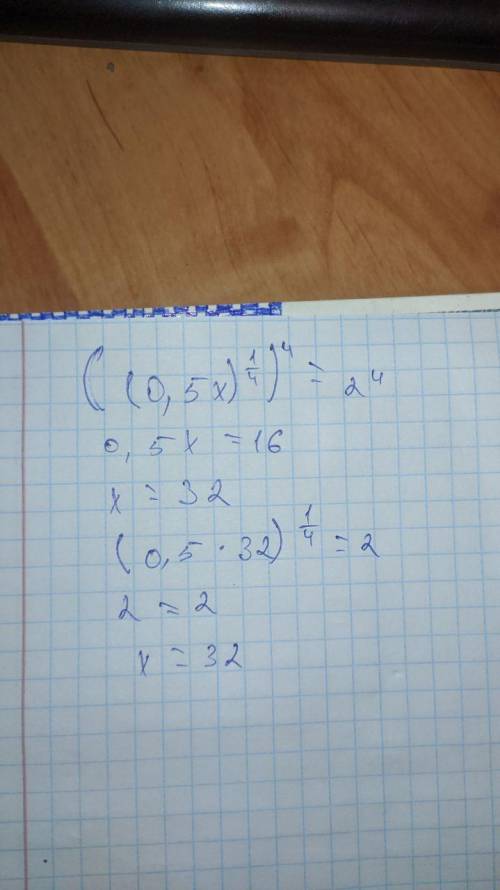 ((0,5x)^{1/4})^4 = 2^4
0,5x = 16
x = 32
(0,5 · 32)^{1/4} = 2
2 = 2
x = 32